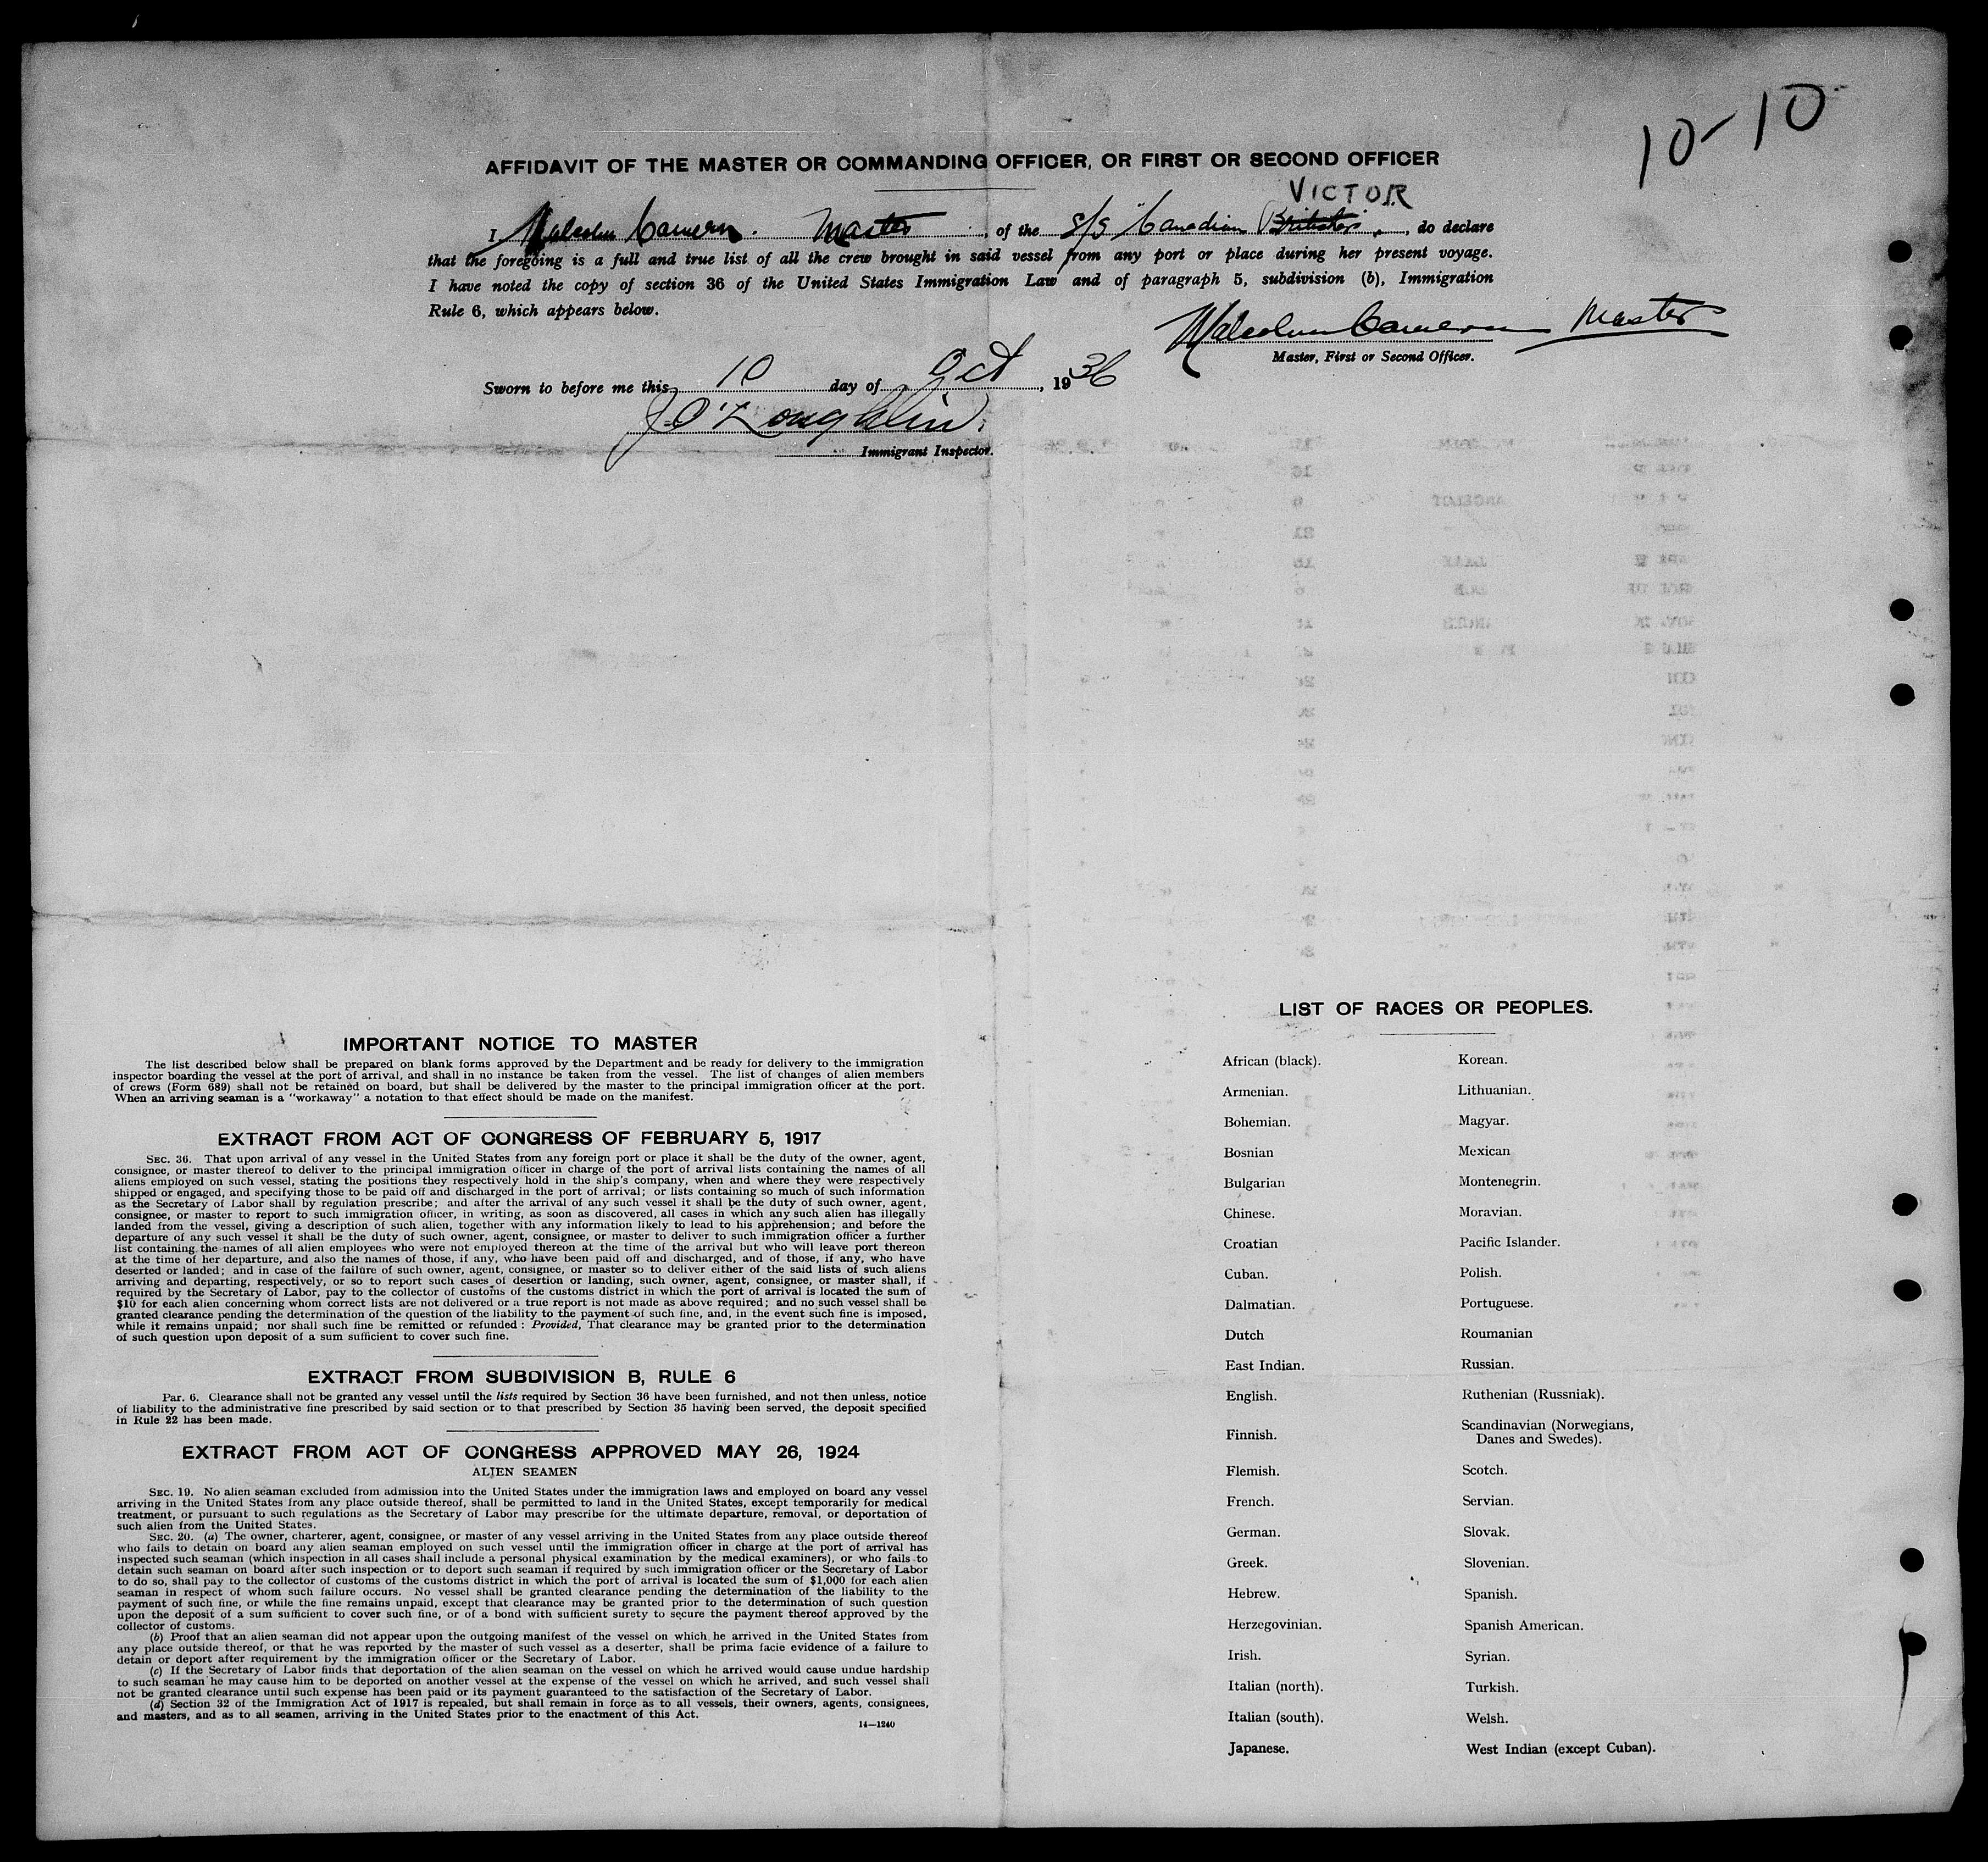 10-10
AFFIDAVIT OF THE MASTER OR COMMANDING OFFICER, OR FIRST OR SECOND OFFICER
VICTOR
I Malcolm Cameron. Master, of the S/S "Canadian British", do declare
that the foregoing is a full and true list of all the crew brought in said vessel from any port or place during her present voyage.
I have noted the copy of section 36 of the United States Immigration Law and of paragraph 5, subdivision (b), Immigration
Rule 6, which appears below.
Malcolm Cameron Master
Master, First or Second Officer.
Sworn to before me this 10 day of Oct, 1936
J O'Loughlin
Immigrant Inspector.
IMPORTANT NOTICE TO MASTER
The list described below shall be prepared on blank forms approved by the Department and be ready for delivery to the immigration
inspector boarding the vessel at the port of arrival, and shall in no instance be taken from the vessel. The list of changes of alien members
of crews (Form 689) shall not be retained on board, but shall be delivered by the master to the principal immigration officer at the port.
When an arriving seaman is a "workaway" a notation to that effect should be made on the manifest.
EXTRACT FROM ACT OF CONGRESS OF FEBRUARY 5, 1917
SEC. 36. That upon arrival of any vessel in the United States from any foreign port or place it shall be the duty of the owner, agent,
consignee, or master thereof to deliver to the principal immigration officer in charge of the port of arrival lists containing the names of all
aliens employed on such vessel, stating the positions they respectively hold in the ship's company, when and where they were respectively
shipped or engaged, and specifying those to be paid off and discharged in the port of arrival; or lists containing so much of such information
as the Secretary of Labor shall by regulation prescribe; and after the arrival of any such vessel it shall be the duty of such owner, agent,
consignee, or master to report to such immigration officer, in writing, as soon as discovered, all cases in which any such alien has illegally
landed from the vessel, giving a description of such alien, together with any information likely to lead to his apprehension; and before the
departure of any such vessel it shall be the duty of such owner, agent, consignee, or master to deliver to such immigration officer a further
list containing the names of all alien employees who were not employed thereon at the time of the arrival but who will leave port thereon
at the time of her departure, and also the names of those, if any, who have been paid off and discharged, and of those, if any, who have
deserted or landed; and in case of the failure of such owner, agent, consignee, or master so to deliver either of the said lists of such aliens
arriving and departing, respectively, or so to report such cases of desertion or landing, such owner, agent, consignee, or master shall, if
required by the Secretary of Labor, pay to the collector of customs of the customs district in which the port of arrival is located the sum of
$10 for each alien concerning whom correct lists are not delivered or a true report is not made as above required; and no such vessel shall be
granted clearance pending the determination of the question of the liability to the payment of such fine, and, in the event such fine is imposed,
while it remains unpaid; nor shall such fine be remitted or refunded: Provided, That clearance may be granted prior to the determination
of such question upon deposit of a sum sufficient to cover such fine.
EXTRACT FROM SUBDIVISION B, RULE 6
Par. 6. Clearance shall not be granted any vessel until the lists required by Section 36 have been furnished, and not then unless, notice
of liability to the administrative fine prescribed by said section or to that prescribed by Section 35 having been served, the deposit specified
in Rule 22 has been made.
EXTRACT FROM ACT OF CONGRESS APPROVED MAY 26, 1924
ALIEN SEAMEN
SEC. 19. No alien seaman excluded from admission into the United States under the immigration laws and employed on board any vessel
arriving in the United States from any place outside thereof, shall be permitted to land in the United States, except temporarily for medical
treatment, or pursuant to such regulations as the Secretary of Labor may prescribe for the ultimate departure, removal, or deportation of
such alien from the United States.
SEC. 20. (a) The owner, charterer, agent, consignee, or master of any vessel arriving in the United States from any place outside thereof
who fails to detain on board any alien seaman employed on such vessel until the immigration officer in charge at the port of arrival has
inspected such seaman (which inspection in all cases shall include a personal physical examination by the medical examiners), or who fails to
detain such seaman on board after such inspection or to deport such seaman if required by such immigration officer or the Secretary of Labor
to do so, shall pay to the collector of customs of the customs district in which the port of arrival is located the sum of $1,000 for each alien
seaman in respect of whom such failure occurs. No vessel shall be granted clearance pending the determination of the liability to the
payment of such fine, or while the fine remains unpaid, except that clearance may be granted prior to the determination of such question
upon the deposit of a sum sufficient to cover such fine, or of a bond with sufficient surety to secure the payment thereof approved by the
collector of customs.
(b) Proof that an alien seaman did not appear upon the outgoing manifest of the vessel on which he arrived in the United States from
any place outside thereof, or that he was reported by the master of such vessel as a deserter, shall be prima facie evidence of a failure to
detain or deport after requirement by the immigration officer or the Secretary of Labor.
(c) If the Secretary of Labor finds that deportation of the alien seaman on the vessel on which he arrived would cause undue hardship
to such seaman he may cause him to be deported on another vessel at the expense of the vessel on which he arrived, and such vessel shall
not be granted clearance until such expense has been paid or its payment guaranteed to the satisfaction of the Secretary of Labor.
(d) Section 32 of the Immigration Act of 1917 is repealed, but shall remain in force as to all vessels, their owners, agents, consignees,
and masters, and as to all seamen, arriving in the United States prior to the enactment of this Act.
14—1240
LIST OF RACES OR PEOPLES.
African (black). Korean.
Armenian. Lithuanian.
Bohemian. Magyar.
Bosnian Mexican
Bulgarian Montenegrin.
Chinese. Moravian.
Croatian Pacific Islander.
Cuban. Polish.
Dalmatian. Portuguese.
Dutch Roumanian
East Indian. Russian.
English. Ruthenian (Russniak).
Finnish. Scandinavian (Norwegians,
Danes and Swedes).
Flemish. Scotch.
French. Servian.
German. Slovak.
Greek. Slovenian.
Hebrew. Spanish.
Herzegovinian. Spanish American.
Irish. Syrian.
Italian (north). Turkish.
Italian (south). Welsh.
Japanese. West Indian (except Cuban).